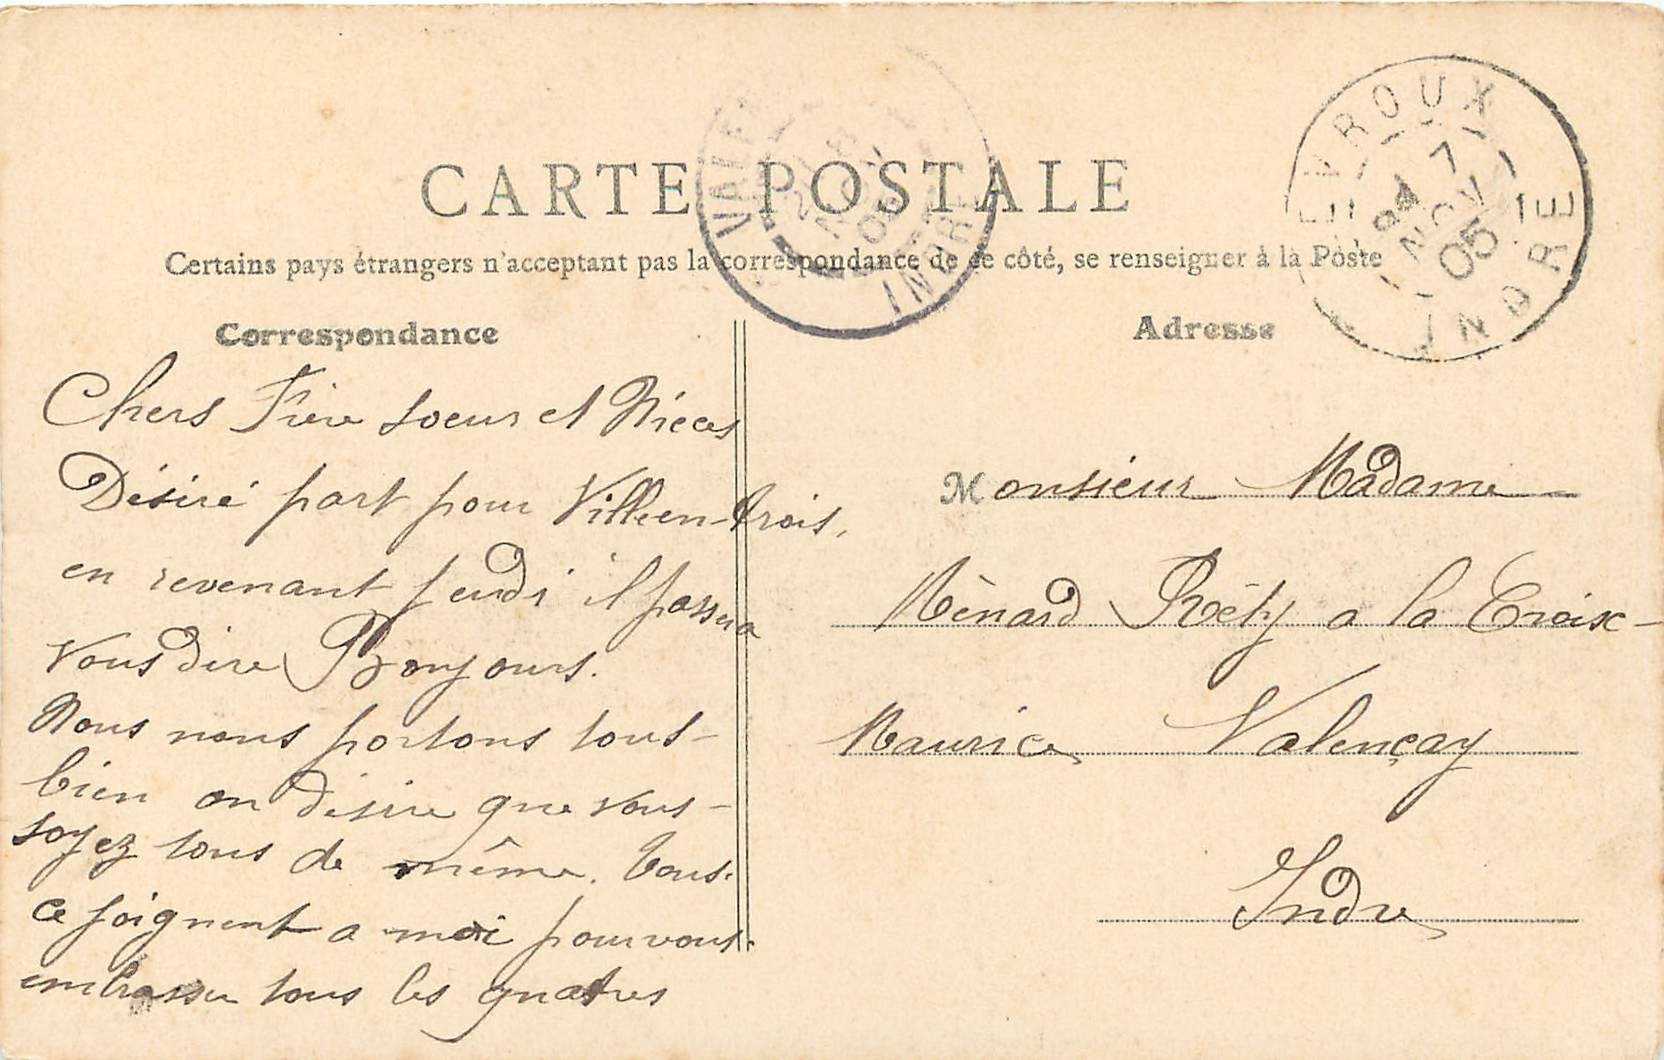 CARTE POSTALE
Certains pays étrangers n'acceptant pas la correspondance de ce côté, se renseigner à la Poste
Correspondance
Adresse
Chers Frère soeur et Nieces
Désiré part pour Villeentrois,
en revenant jeudi il passera
vous dire Bonjours.
Nous nous portons tous
bien on désire que vous
soyez tous de même. Tous
ce joignent a moi pour vous
embrasser tous les quatres
Monsieur Madame
Ménard Réty a la Croix
Maurice Valençay
Indre
VALE INDRE
NOV 05
EVROUX INDRE
7 NOV 05